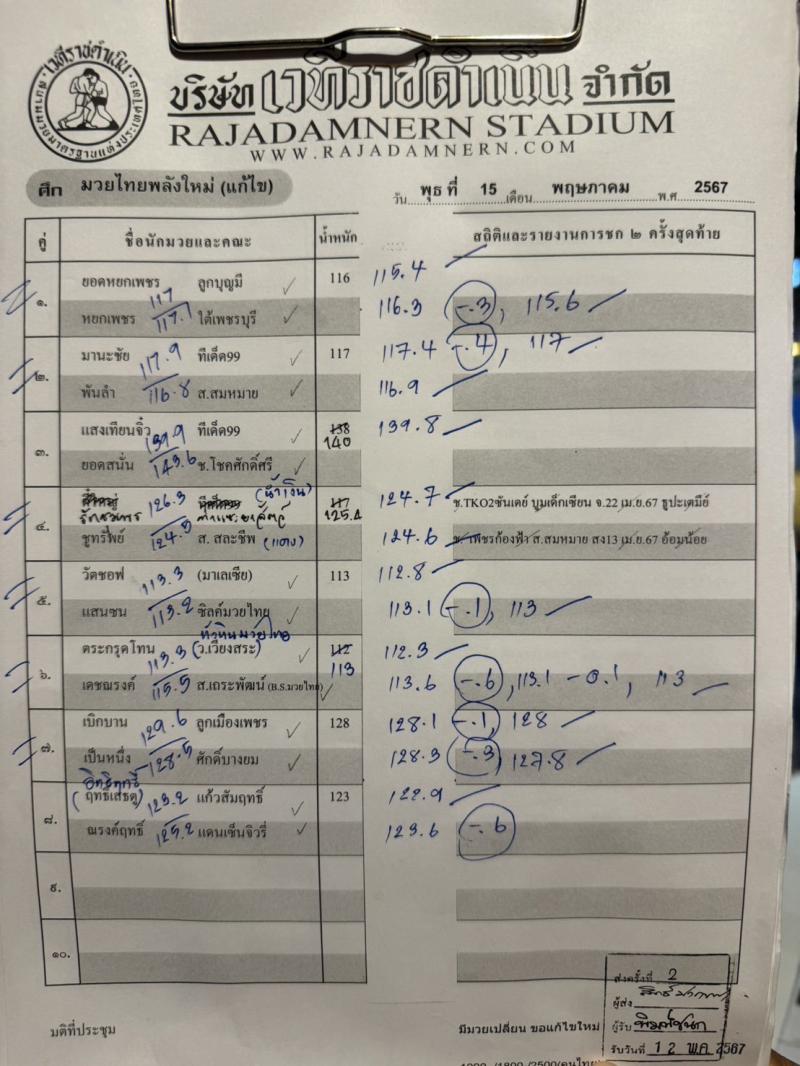 เวทีราชดำเนิน
บริษัท เวทีราชดำเนิน จำกัด
RAJADAMNERN STADIUM
WWW.RAJADAMNERN.COM
ศึก มวยไทยพลังใหม่ (แก้ไข) วัน พุธ ที่ 15 เดือน พฤษภาคม พ.ศ 2567
คู่ ชื่อนักมวยและคณะ น้ำหนัก สถิติและรายงานการชก ๒ ครั้งสุดท้าย
๑. ยอดหยกเพชร ลูกบุญมี 116 115.4
117
หยกเพชร 117.1 ใต้เพชรบุรี 116.3 -.3, 115.6
๒. มานะชัย 117.9 ทีเด็ด99 117 117.4 -.4, 117
พันลำ 116.8 ส.สมหมาย 116.9
๓. แสงเทียนจิ๋ว 139.9 ทีเด็ด99 138 140 139.8
ยอดสนั่น 143.6 ช.โชคศักดิ์ศรี
๔. 126.3 (น้ำเงิน) 117 125.4 124.7 ช.TKO2ซันเดย์ บูมเด็กเซียน จ.22 เม.ย.67 ธูปะเตมีย์
ชูทรัพย์ 124.5 ส. สละชีพ (แดง) 124.6 ช.เพชรก้องฟ้า ส.สมหมาย ส่ง13 เม.ย.67 อ้อมน้อย
๕. วัตชอฟ 113.3 (มาเลเซีย) 113 112.8
แสนซน 113.2 ซิลค์มวยไทย 113.1 -.1, 113
หัวหินมวยไทย
๖. ตระกรุดโทน 113.3 (ว.เวียงสระ) 112 113 112.3
เดชณรงค์ 115.5 ส.เถระพัฒน์ (B.S.มวยไทย) 113.6 -.6, 113.1 -0.1, 113
๗. เบิกบาน 129.6 ลูกเมืองเพชร 128 128.1 -.1, 128
เป็นหนึ่ง 128.5 ศักดิ์บางยม 128.3 -.3, 127.8
อิทธิฤทธิ์
๘. (ฤทธิ์เสธตู) 123.2 แก้วสัมฤทธิ์ 123 122.9
ณรงค์ฤทธิ์ 125.2 แดนเซ็นจิวรี่ 123.6 -.6
๙.
๑๐.
มติที่ประชุม
มีมวยเปลี่ยน ขอแก้ไขใหม่
ส่งครั้งที่ 2
ผู้ส่ง
ผู้รับ
รับวันที่ 12 พ.ค. 2567